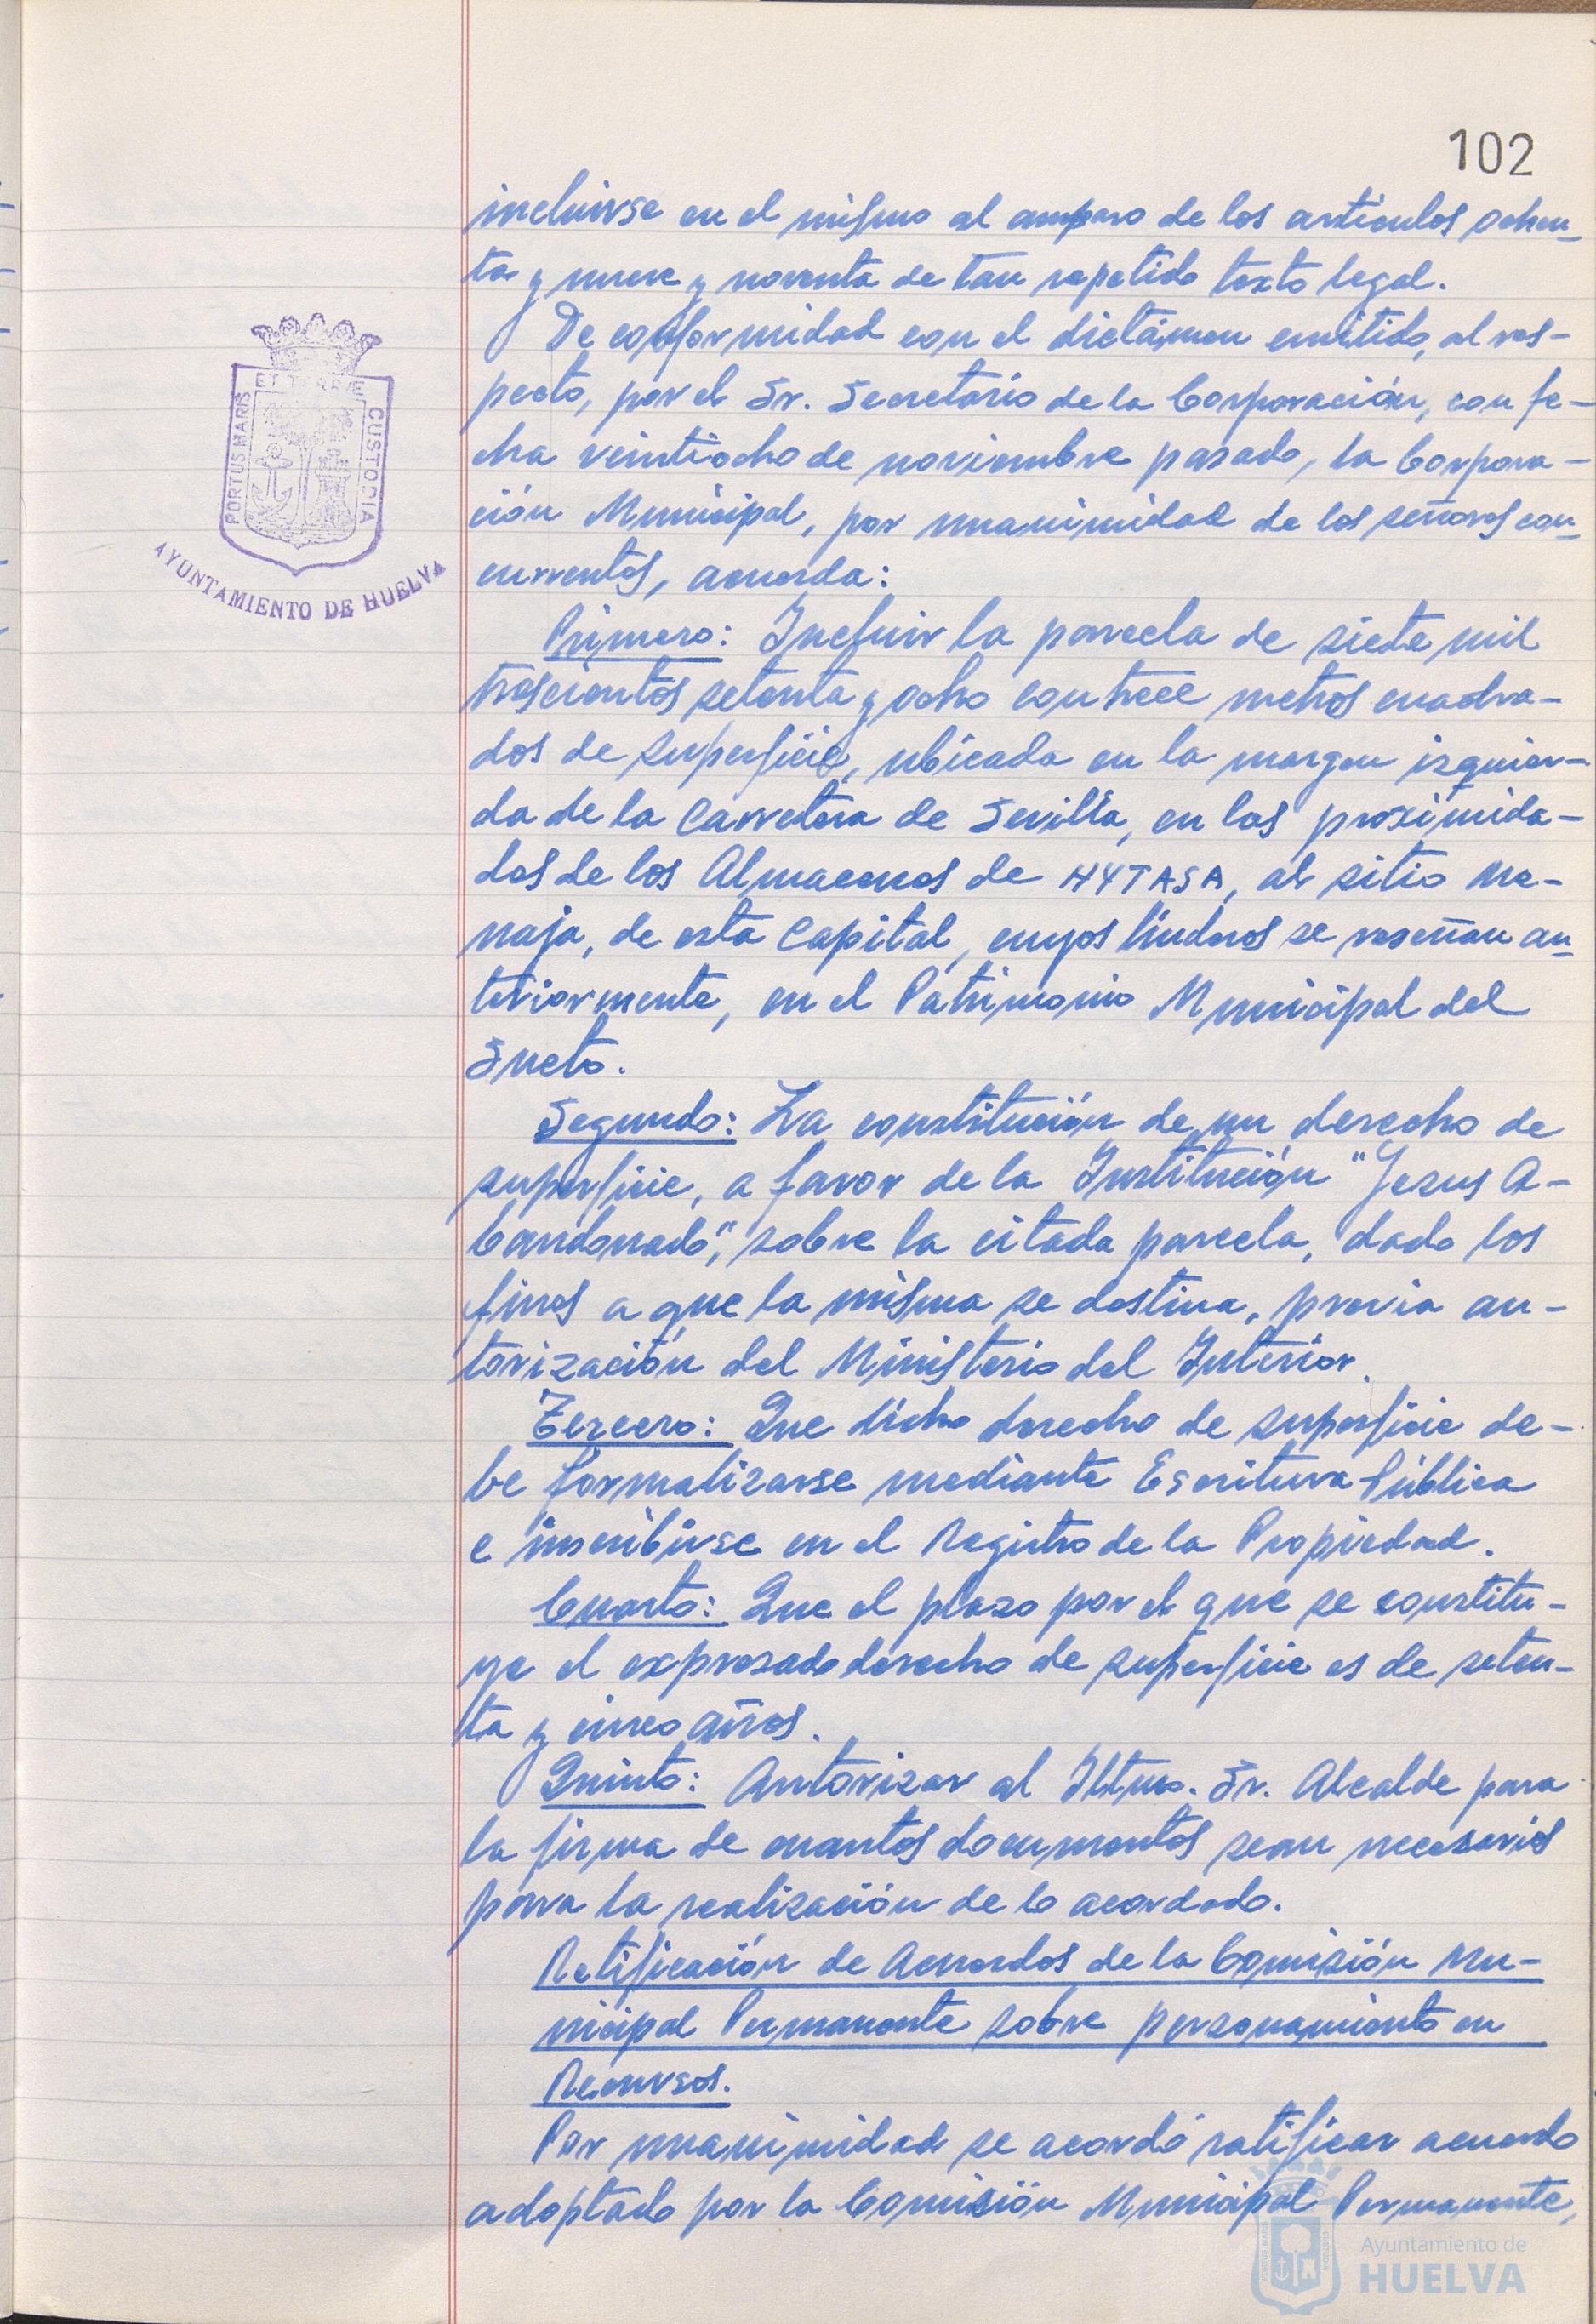 102
incluirse en el mismo al amparo de los artículos ochen_
ta y nueve y noventa de tan repetido texto legal.
De conformidad con el dictámen emitido, al res-
pecto, por el Sr. Secretario de la Corporación, con fe-
cha veintiocho de noviembre pasado, la Corpora-
ción Municipal, por unanimidad de los señores con_
currentes, acuerda:
Primero: Incluir la parcela de siete mil
trescientos setenta y ocho con trece metros cuadra-
dos de superficie, ubicada en la margen izquier-
da de la Carretera de Sevilla, en las proximida-
des de los Almacenes de HYTASA, al sitio Me-
naja, de esta Capital, cuyos linderos se reseñan an_
teriormente, en el Patrimonio Municipal del
Suelo.
Segundo: La constitución de un derecho de
superficie, a favor de la Institución "Jesus A-
bandonado", sobre la citada parcela, dado los
fines a que la misma se destina, previa au-
torización del Ministerio del Interior.
Tercero: Que dicho derecho de superficie de-
be formalizarse mediante Escritura Pública
e inscribirse en el Registro de la Propiedad.
Cuarto: Que el plazo por el que se constitu-
ye el expresado derecho de superficie es de seten-
ta y cinco años.
Quinto: Autorizar al Iltmo. Sr. Alcalde para
la firma de cuantos documentos sean necesarios
para la realización de lo acordado.
Ratificación de Acuerdos de la Comisión Mu-
nicipal Permanente sobre personamiento en
Recursos.
Por unanimidad se acordó ratificar acuerdo
adoptado por la Comisión Municipal Permanente,
PORTUS MARIS
ET TERRE
CUSTODIA
AYUNTAMIENTO DE HUELVA
Ayuntamiento de
HUELVA